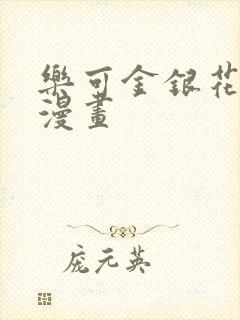 樂可金銀花
漫畫
龐元英